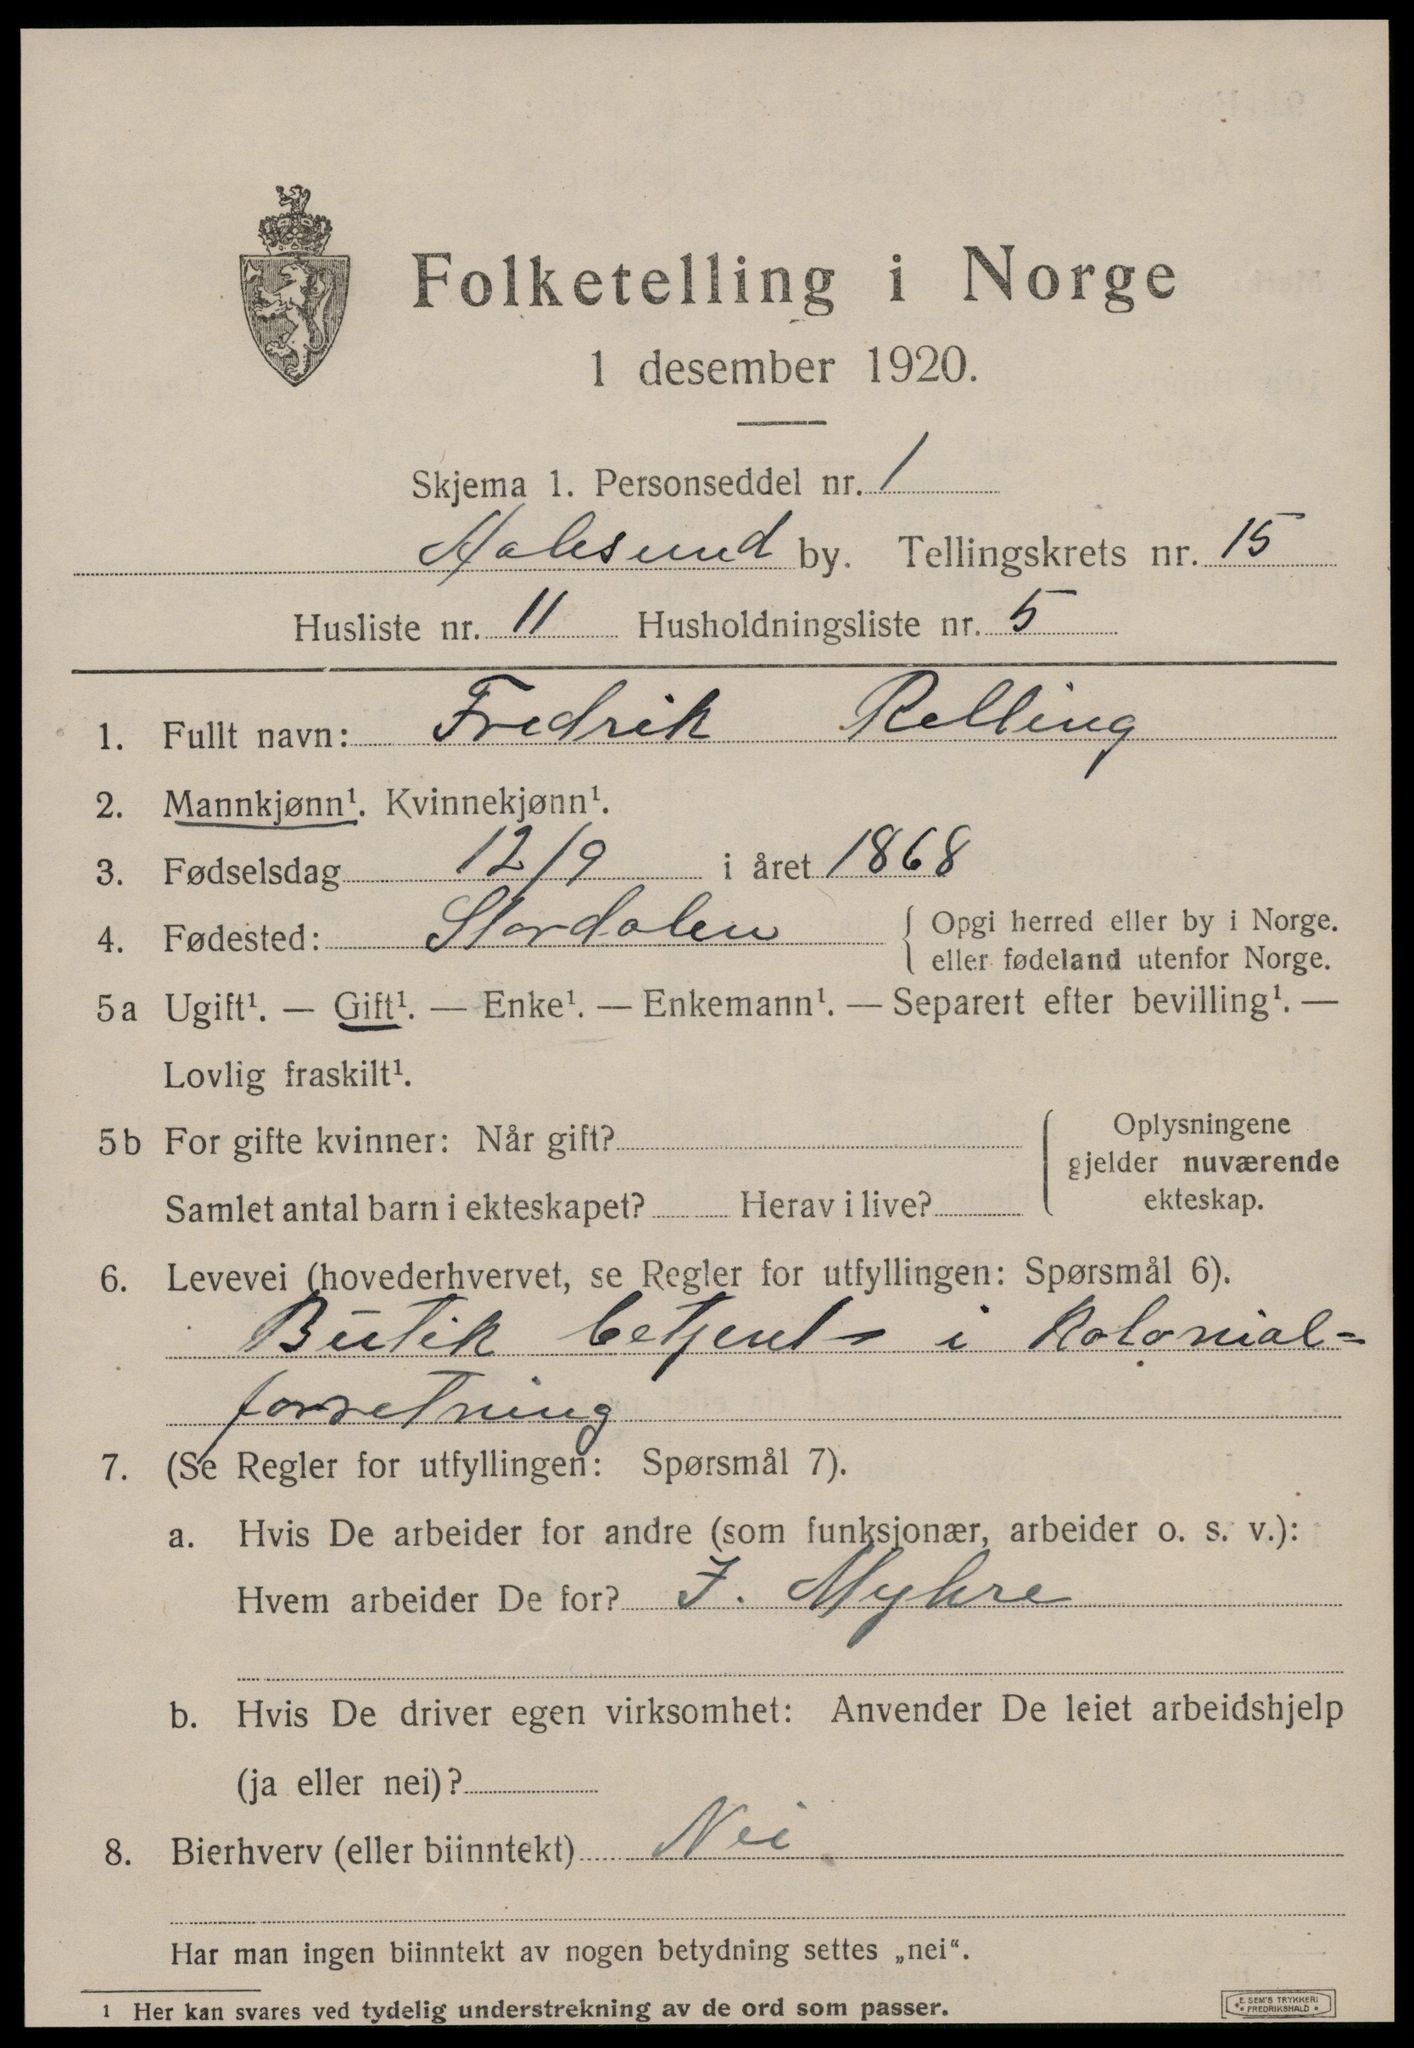 Folketelling i Norge
1 desember 1920.
Skjema 1. Personseddel nr. 1
Aalesund by. Tellingskrets nr. 15
Husliste nr. 11 Husholdningsliste nr. 5
1. Fullt navn: Fredrik Relling
2. Mannkjønn¹. Kvinnekjønn¹.
3. Fødselsdag 12/9 i året 1868
4. Fødested: Stordalen { Opgi herred eller by i Norge.
eller fødeland utenfor Norge.
5a Ugift¹. — Gift¹. — Enke¹. — Enkemann¹. — Separert efter bevilling¹. —
Lovlig fraskilt¹.
5b For gifte kvinner: Når gift?
Samlet antal barn i ekteskapet? Herav i live?
Oplysningene
gjelder nuværende
ekteskap.
6. Levevei (hovederhvervet, se Regler for utfyllingen: Spørsmål 6).
Butik betjent i kolonial=
forretning
7. (Se Regler for utfyllingen: Spørsmål 7).
a. Hvis De arbeider for andre (som funksjonær, arbeider o. s. v.):
Hvem arbeider De for? J. Myhre
b. Hvis De driver egen virksomhet: Anvender De leiet arbeidshjelp
(ja eller nei)?
8. Bierhverv (eller biinntekt) Nei
Har man ingen biinntekt av nogen betydning settes „nei“.
¹ Her kan svares ved tydelig understrekning av de ord som passer.
E. SEM'S TRYKKERI
FREDRIKSHALD